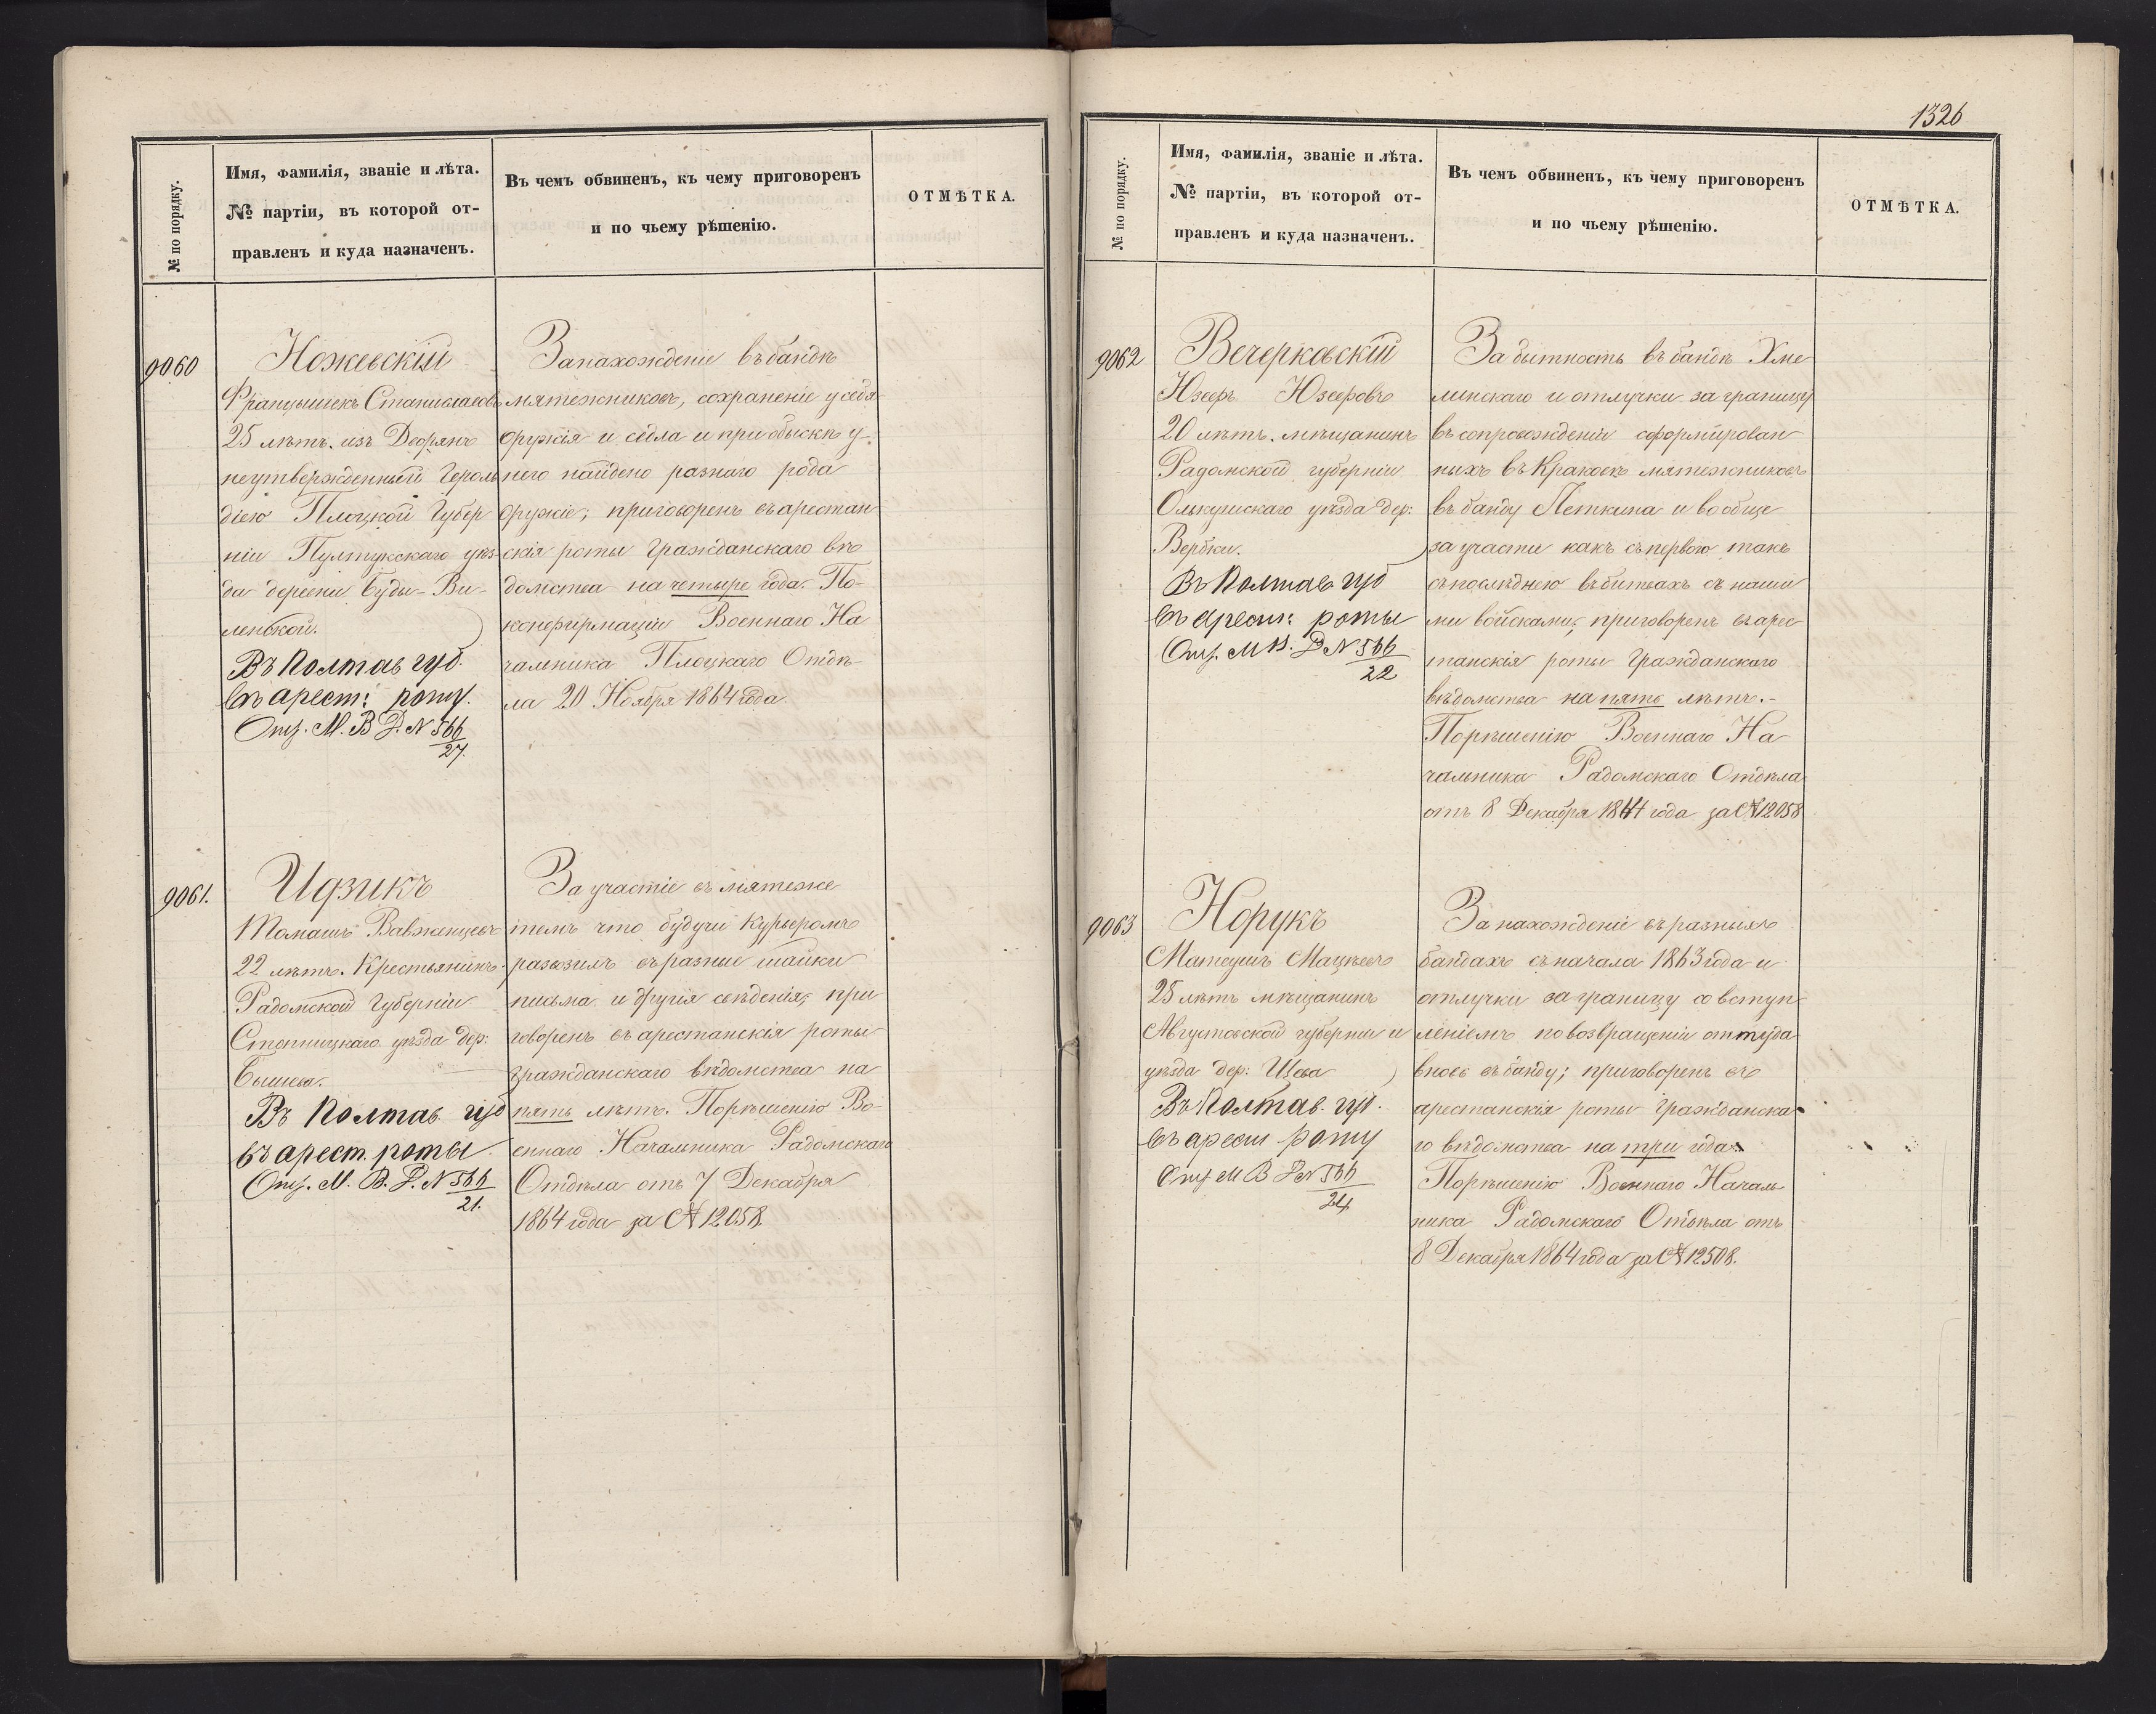 № по порядку.
Имя, фамилія, званіе и лѣта.
№ партіи, въ которой от-
правленъ и куда назначенъ.
Въ чемъ обвиненъ, къ чему приговоренъ
и по чьему рѣшенію.
ОТМѢТКА.
9060
Ножевскій
Францишекъ Станиславовъ
25 лѣтъ. изъ Дворянъ
неутвержденный Героль
діею Плоцкой Губер
ніи Пултускаго уѣз-
да деревни Буды-
ленской.
Въ Полтав губ.
въ арест: роту.
Отз. М. В. Д. N 566
27.
За нахожденіе въ бандѣ
мятежниковъ, сохраненіе у себя
оружія и седла и при обыскѣ у-
него найдено разнаго рода
оружіе; приговоренъ въ арестан
скія роты Гражданскаго вѣ
домства на четыре года. По-
конфирмаціи Военнаго На
чальника Плоцкаго Отдѣ-
ла 20 Ноября 1864 года.
9061.
Идзикъ
Томашъ Вавженцевъ
22 лѣтъ. Крестьянинъ
Радомской Губерніи
Стопницкаго уѣзда дер:
Въ Полтав губ
въ арест. роты
Отз. М. В. Д. N 566
21.
За участіе въ мятеже
тѣмъ что будучи Курьеромъ
развозилъ въ разные шайки
письма и другія свѣденія; при
говоренъ въ арестанскія роты
гражданскаго вѣдомства на
пять лѣтъ. По рѣшенію Во-
еннаго Начальника Радомскаго
Отдѣла отъ 7 Декабря
1864 года за № 12058.
1326
№ по порядку.
Имя, фамилія, званіе и лѣта.
№ партіи, въ которой от-
правленъ и куда назначенъ.
Въ чемъ обвиненъ, къ чему приговоренъ
и по чьему рѣшенію.
ОТМѢТКА.
9062
Вечерковскій
Юзефъ Юзефовъ
20 лѣтъ. мѣщанинъ
Радомской губерніи
Олькушскаго уѣзда дер:
Вербки.
Въ Полтав губ
въ арест: роты
Отз. М. В. Д. N 566
22
За бытность въ бандѣ Хме
линскаго и отлучки за границу
въ сопровожденіи сформирован
ныхъ въ Краковѣ мятежниковъ
въ банду и вообще
за участи какъ съ первою такъ
съ послѣднею въ битвахъ съ наши
ми войсками; приговоренъ въ арес
танскія роты Гражданскаго
вѣдомства на пять лѣтъ.-
По рѣшенію Военнаго На
чальника Радомскаго Отдѣла
отъ 8 Декабря 1864 года за № 12058
9063
Норукъ
Матеушъ Мацѣевъ
25 лѣтъ мѣщанинъ
Августовской губерніи и
уѣзда дер: Щева
Въ Полтав. губ.
въ арест роту
Отз М В Д N 566
24
За нахожденіе въ разныхъ
бандахъ съ начала 1863 года и
отлучки за границу со вступ
леніемъ по возвращеніи оттуда
вновь въ банду; приговоренъ въ
арестанскія роты гражданска-
го вѣдомства на три года
По рѣшенію Военнаго Началь
ника Радомскаго Отдѣла отъ
8 Декабря 1864 года за № 12508.